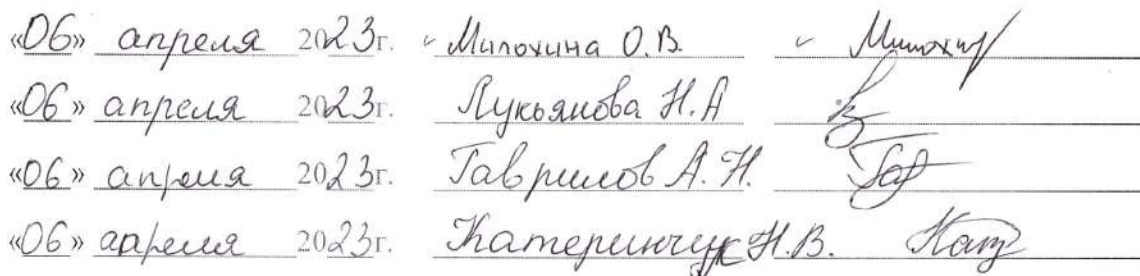 «06» апреля 2023г. Милохина О.В. Милохин
«06» апреля 2023г. Лукьянова Н.А
«06» апреля 2023г. Гаврилов А.Н. Гав
«06» апреля 2023г. Катеринчук Н.В. Кат